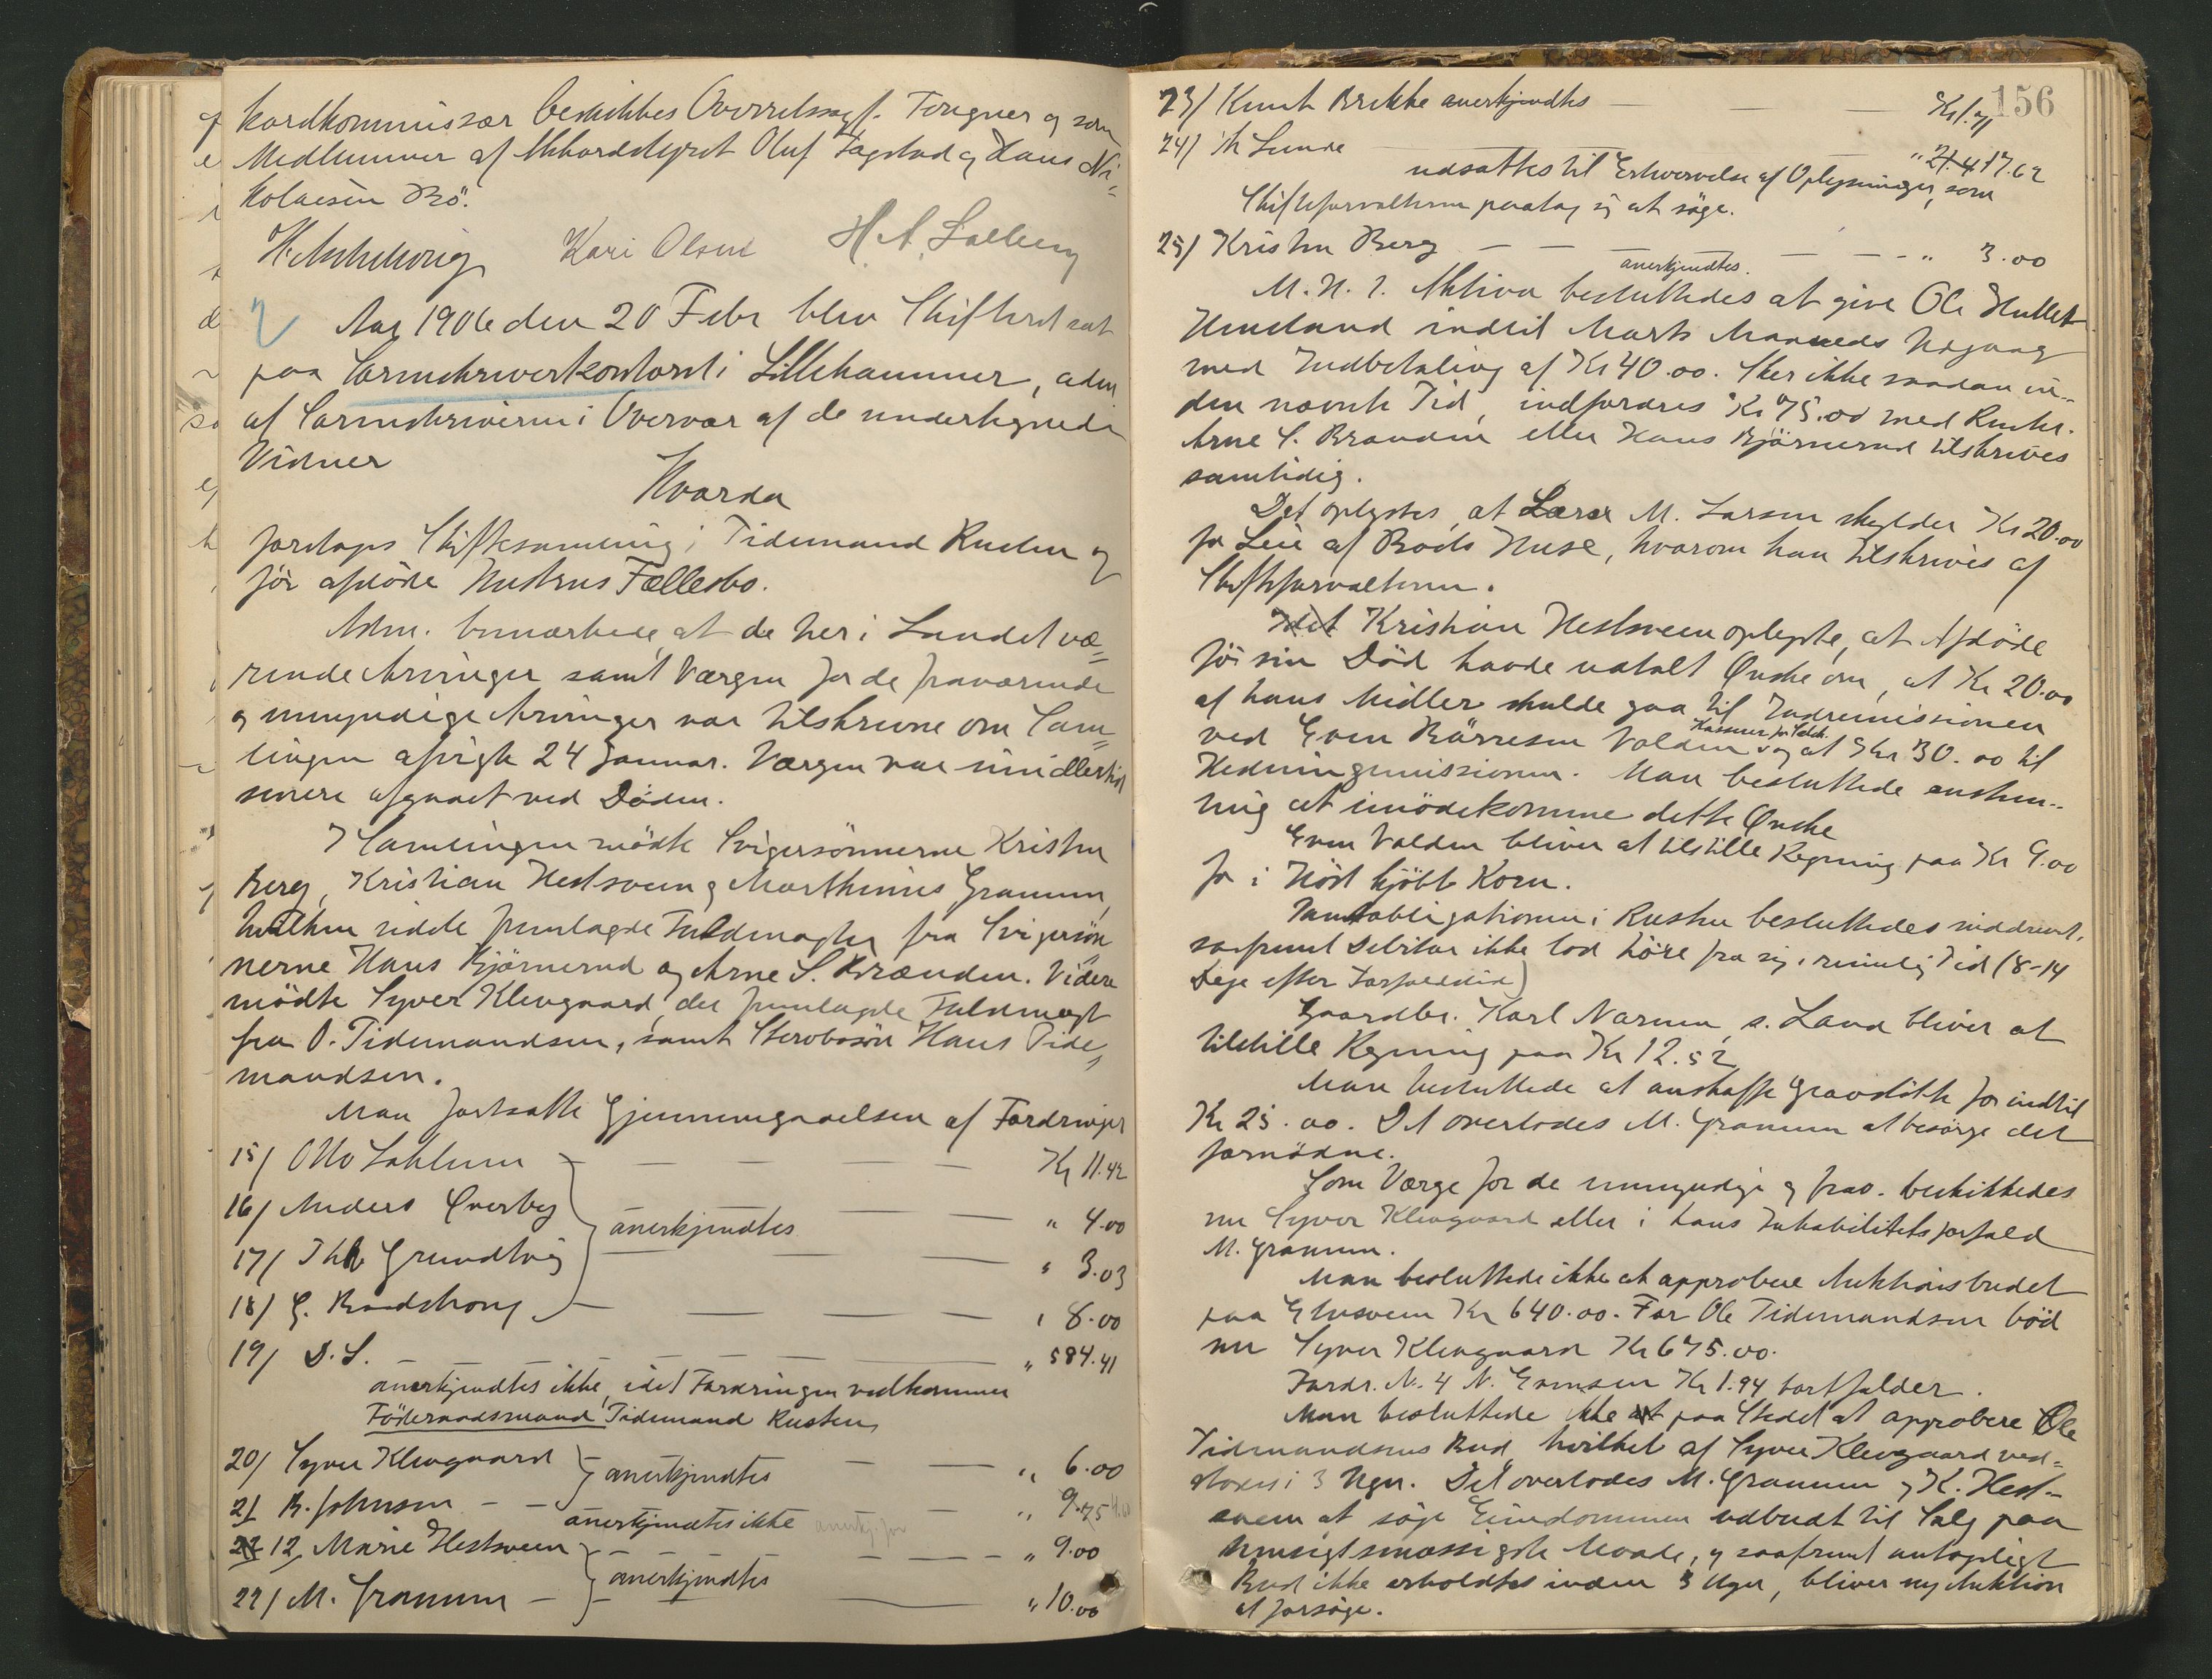 kordkommissær beskikkes Overretssagf. Tougner og som
Medlemmer af Akkordstyret Oluf Fagstad og Hans Ni=
kolaisen Bö.
Kari Olsen
Aar 1906 den 20 Febr blev Skifteret sat
paa Sorenskriverkontoret i Lillehammer, adm
af Sorenskriveren i Overvær af de undertegnede
Vidner
Hvorda
foretoges Skiftesamling i Tidemand Rusten og
för afdöde Hustrus Fællesbo.
Adm. bemærkede, at de her i Landet væ=
rende Arvinger samt Værgen for de fraværende
og umyndige Arvinger var tilskrevne om Sam=
lingen afvigte 24 Januar. Værgen var imidlertid
senere afgaaet ved Döden.
I Samlingen mödte Svigersönnerne Kristen
Berg, Kristian Hestsveen og Marthinus Gramm,
hvilken sidste fremlagde Fuldmagter fra Svigersön
nerne Hans Bjørnerud og Arne S. Brænden. Videre
mödte Syver Klevgaard, der fremlagde Fuldmagt
fra O. Tidemandsen, samt Sterbosön Hans Tide=
mandsen.
Man fortsatte Gjennemgaaelsen af Fordringer
15/ Otto Lahlum — — — — Kr 11.42
16/ Anders Överby — — " 4.00
anerkjendtes
17/ Grundtvig — — " 3.03
18/ G. — — — — " 8.00
19/ D. S. — — — — " 584.41
anerkjendtes ikke, idet Fordringen vedkommer
Föderaadsmand Tidemand Rusten
20/ Syver Klevgaard anerkjendtes — — " 6.00
21 B. Johnsen — — anerkjendtes ikke — " 9.75
22 12, Marie Hestsveen — — — " 9.00
anerkjendtes
22/ M. Gramm — — " 10.00
156
23/ Knut Brekke anerkjendtes — —
24/ Lunde — " 417.62
udsattes til Erhvervelse af Oplysninger, som
Skifteforvalteren paatog sig at söge.
25/ Kristen Berg — — anerkjendtes. — — - " 3.00
M. H. t. Aktiva besluttedes at give Ole Hullet
Henstand indtil Marts Maaneds Udgang
med Indbetaling af Kr 40.00. Sker ikke saadan in-
den nævnte Tid, indfordres Kr 75.00 med Renter.
Arne S. Brænden eller Hans Bjørnerud tilskrives
samtidig.
Det oplystes, at Lærer M. Larsen skylder Kr 20.00
for Leie af Boets Huse, hvorom han tilskrives af
Skifteforvalteren.
Kristian Hestsveen oplyste, at Afdöde
för sin Död havde udtalt Ønske om, at Kr 20.00
af hans Midler skulde gaa til Indremissionen
ved Even Börresen Volden Kasserer for Selsk. og at Kr 30.00 til
Hedningemissionen. Man besluttede enstem-
mig at imödekomme dette Ønske
Even Volden bliver at tilstille Regning paa Kr 9.00
for i Höst kjöbt Korn.
Panteobligationen i Rusten besluttedes inddrevet,
saafremt Debitor ikke lod höre fra sig i rimelig Tid (8-14
Dage efter Forfaldstid)
Gaardbr. Karl Narum, s. Land bliver at
tilstille Regning paa Kr 12.52
Man besluttede at anskaffe Gravstötte for indtil
Kr 25.00. Det overlodes M. Gramm at besörge det
fornödne.
Som Værge for de umyndige og frav. beskikkedes
nu Syver Klevgaard eller i hans Inhabilitetsforfald
M. Gramm.
Man besluttede ikke at approbere Auktionsbudet
paa Kr 640.00. For Ole Tidemandsen böd
nu Syver Klevgaard Kr 675.00.
Fordr. N. 4 N. Evensen Kr 1.94 bortfalder.
Man besluttede ikke paa Stedet at approbere Ole
Tidemandsens Bud, hvilket af Syver Klevgaard ved=
stodes i 3 Uger. Det overlodes M. Gramm og K. Hest-
sveen at söge Eiendommen udbudt til Salg paa
hensigtsmæssigste Maade, og saafremt antageligt
Bud ikke erholdtes inden 3 Uger, bliver ny Auktion
at forsöge.